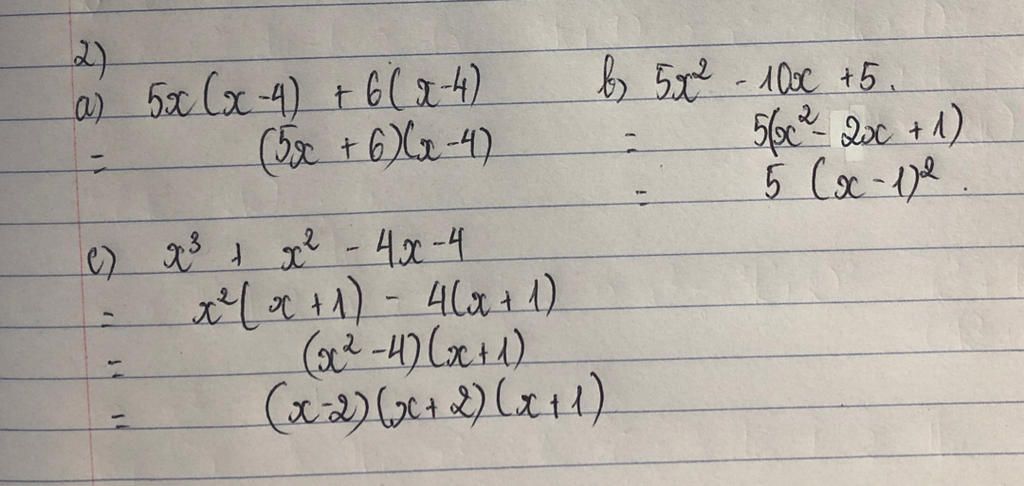 2)
a) 5x(x-4) + 6(x-4)
= (5x + 6)(x-4)
b) 5x² - 10x + 5.
= 5(x² - 2x + 1)
= 5 (x - 1)².
c) x³ + x² - 4x - 4
= x²(x + 1) - 4(x + 1)
= (x² - 4)(x + 1)
= (x-2)(x + 2)(x + 1)